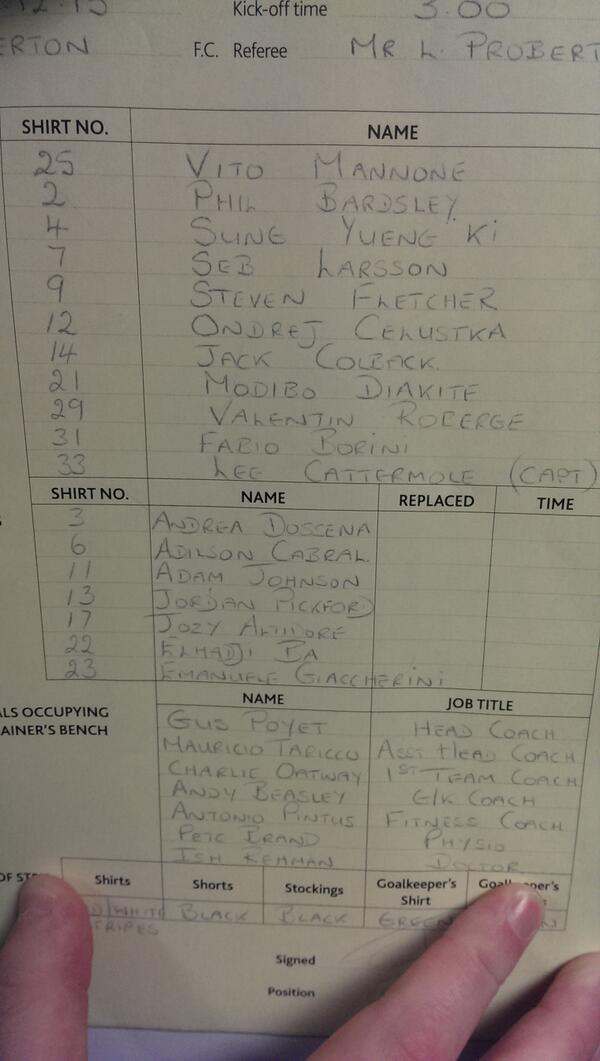 12.13 Kick-off time 3.00
ERTON F.C. Referee MR L. PROBERT
SHIRT NO. NAME
25 VITO MANNONE
2 PHIL BARDSLEY
4 SUNG YUENG KI
7 SEB LARSSON
9 STEVEN FLETCHER
12 ONDREJ CELUSTKA
14 JACK COLBACK
21 MODIBO DIAKITE
29 VALENTIN ROBERGE
31 FABIO BORINI
33 LEE CATTERMOLE (CAPT)
SHIRT NO. NAME REPLACED TIME
3 ANDREA DOSSENA
6 ADILSON CABRAL.
11 ADAM JOHNSON
13 JORDAN PICKFORD
17 JOZY ALTIDORE
22 ELHADJI BA
23 EMANUELE GIACCHERINI
NAME JOB TITLE
ALS OCCUPYING
AINER'S BENCH
GUS POYET HEAD COACH
MAURICIO TARICCO ASST HEAD COACH
CHARLIE OATWAY 1ST TEAM COACH
ANDY BEASLEY G/K COACH
ANTONIO PINTUS FITNESS COACH
PETE BRAND PHYSIO
ISH REHMAN DOCTOR
OF Shirts Shorts Stockings Goalkeeper's Shirt
WHITE STRIPES BLACK BLACK GREEN
Signed
Position